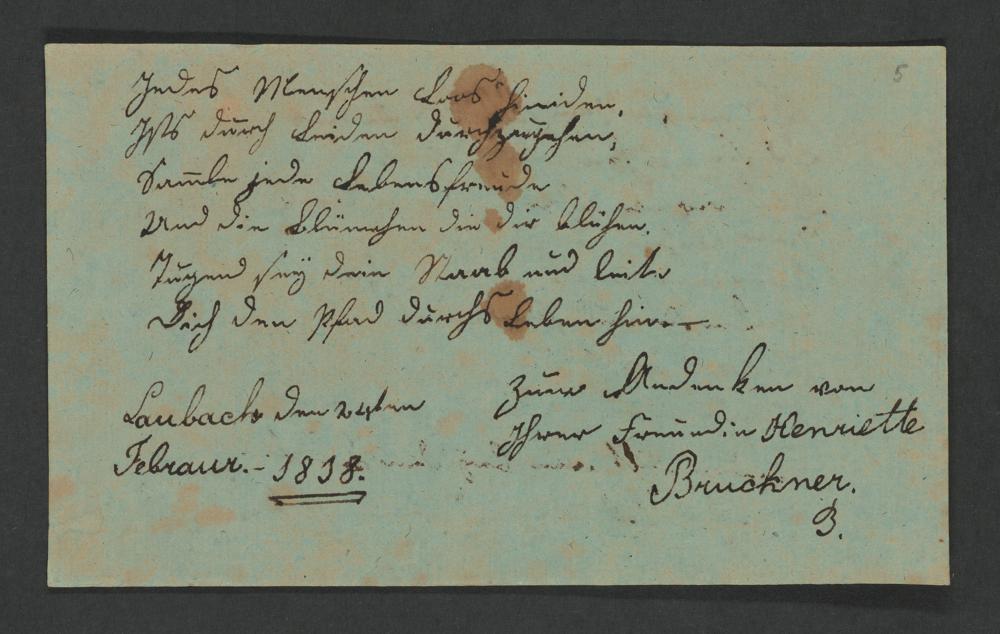 5
Jedes Menschen Loos hiniden,
Ists durch Leiden durchzugehen,
Samle jede Lebensfreude
Und die Blümchen die dir blühen.
Tugend sey dein Staab und leite
Dich den Pfad durchs Leben hin. —
Laubach den 24ten
Febraur. - 1818.
Zum Andenken von
Ihrer Freundin Henriette
Bruckner.
B.